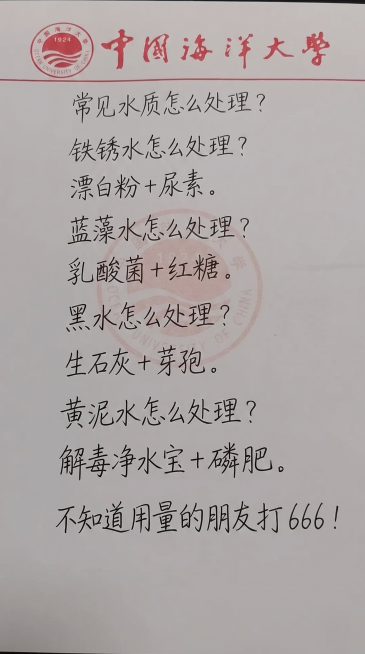 1924
中国海洋大學
常见水质怎么处理？
铁锈水怎么处理？
漂白粉+尿素。
蓝藻水怎么处理？
乳酸菌+红糖。
黑水怎么处理？
生石灰+芽孢。
黄泥水怎么处理？
解毒净水宝+磷肥。
不知道用量的朋友打666！